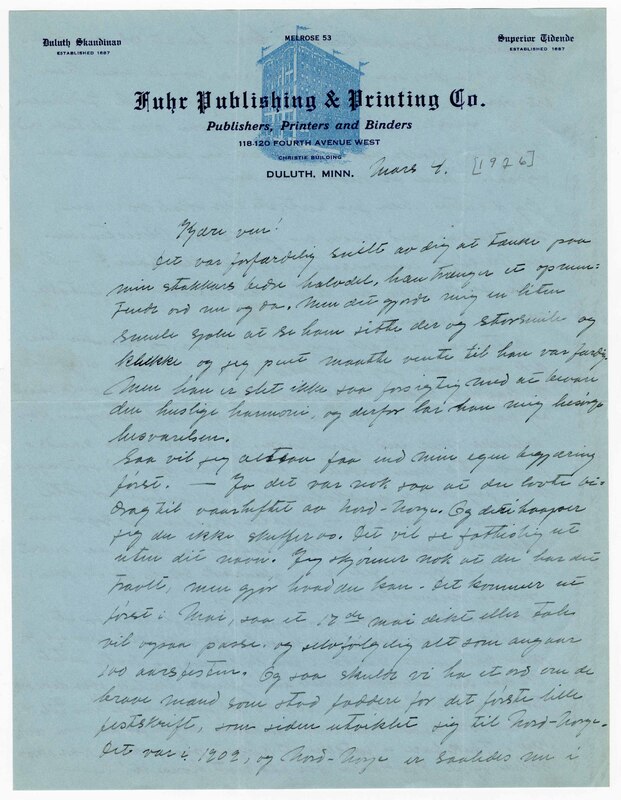 Duluth Skandinav
ESTABLISHED 1887
MELROSE 53
Superior Tidende
ESTABLISHED 1887
Fuhr Publishing & Printing Co.
Publishers, Printers and Binders
118-120 FOURTH AVENUE WEST
CHRISTIE BUILDING
DULUTH, MINN. Mars 4. [1926]
Kjære ven!
Det var forfærdelig snilt av dig at tænke paa
min stakkars bedre halvdel, han trænger et opmun-
trende ord nu og da. Men det gjorde mig en liten
smule sjalu at se ham sitte der og storsmile og
klukke og jeg pent maatte vente til han var færdig.
Men han er slet ikke saa forsigtig med at bevare
den huslige harmoni, og derfor lar han mig besørge
besvarelsen.
Saa vil jeg altsaa faa ind min egen begjæring
først. — Jo det var nok saa at du lovte bi-
drag til vaarheftet av Nord-Norge. Og det haaper
jeg du ikke skuffer os. Det vil se fattislig ut
uten dit navn. Jeg skjønner nok at du har det
travlt, men gjør hvad du kan. Det kommer ut
først i Mai, saa et 17de mai dikt eller tale
vil ogsaa passe, og selvfølgelig alt som angaar
100 aarsfesten. Og saa skulde vi ha et ord om de
brave mænd som stod fadder for det første lille
festskrift, som siden utviklet sig til Nord-Norge.
Det var i 1902, og Nord-Norge er saaledes nu i